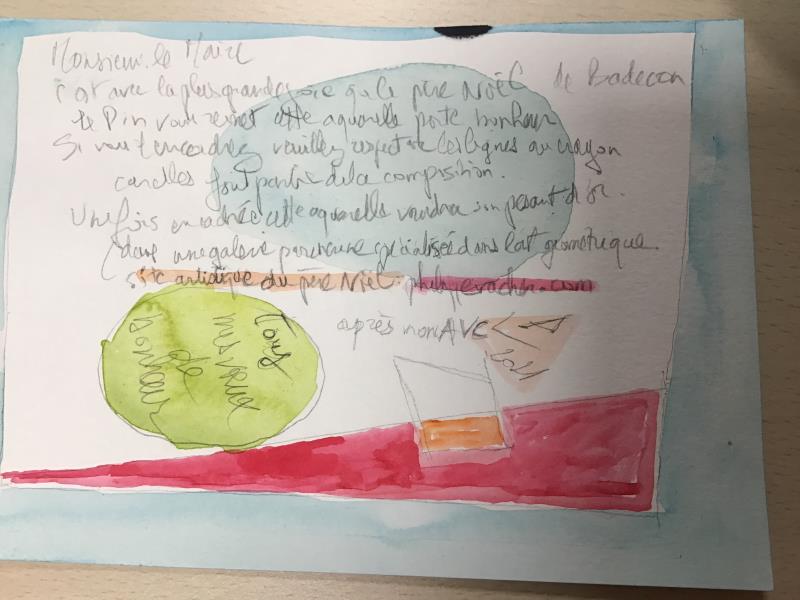 Monsieur le Maire
C'est avec la plus grande joie que le père Noël de Badecon
le Pin vous remet cette aquarelle porte bonheur
Si vous l'encadrez veuillez respecter les lignes au crayon
car elles font partie de la composition.
Une fois encadrée cette aquarelle vaudra son pesant d'or.
(dans une galerie parisienne spécialisée dans l'art géométrique.
site artistique du père Noël
après mon AVC
Tous
mes vœux
de
bonheur